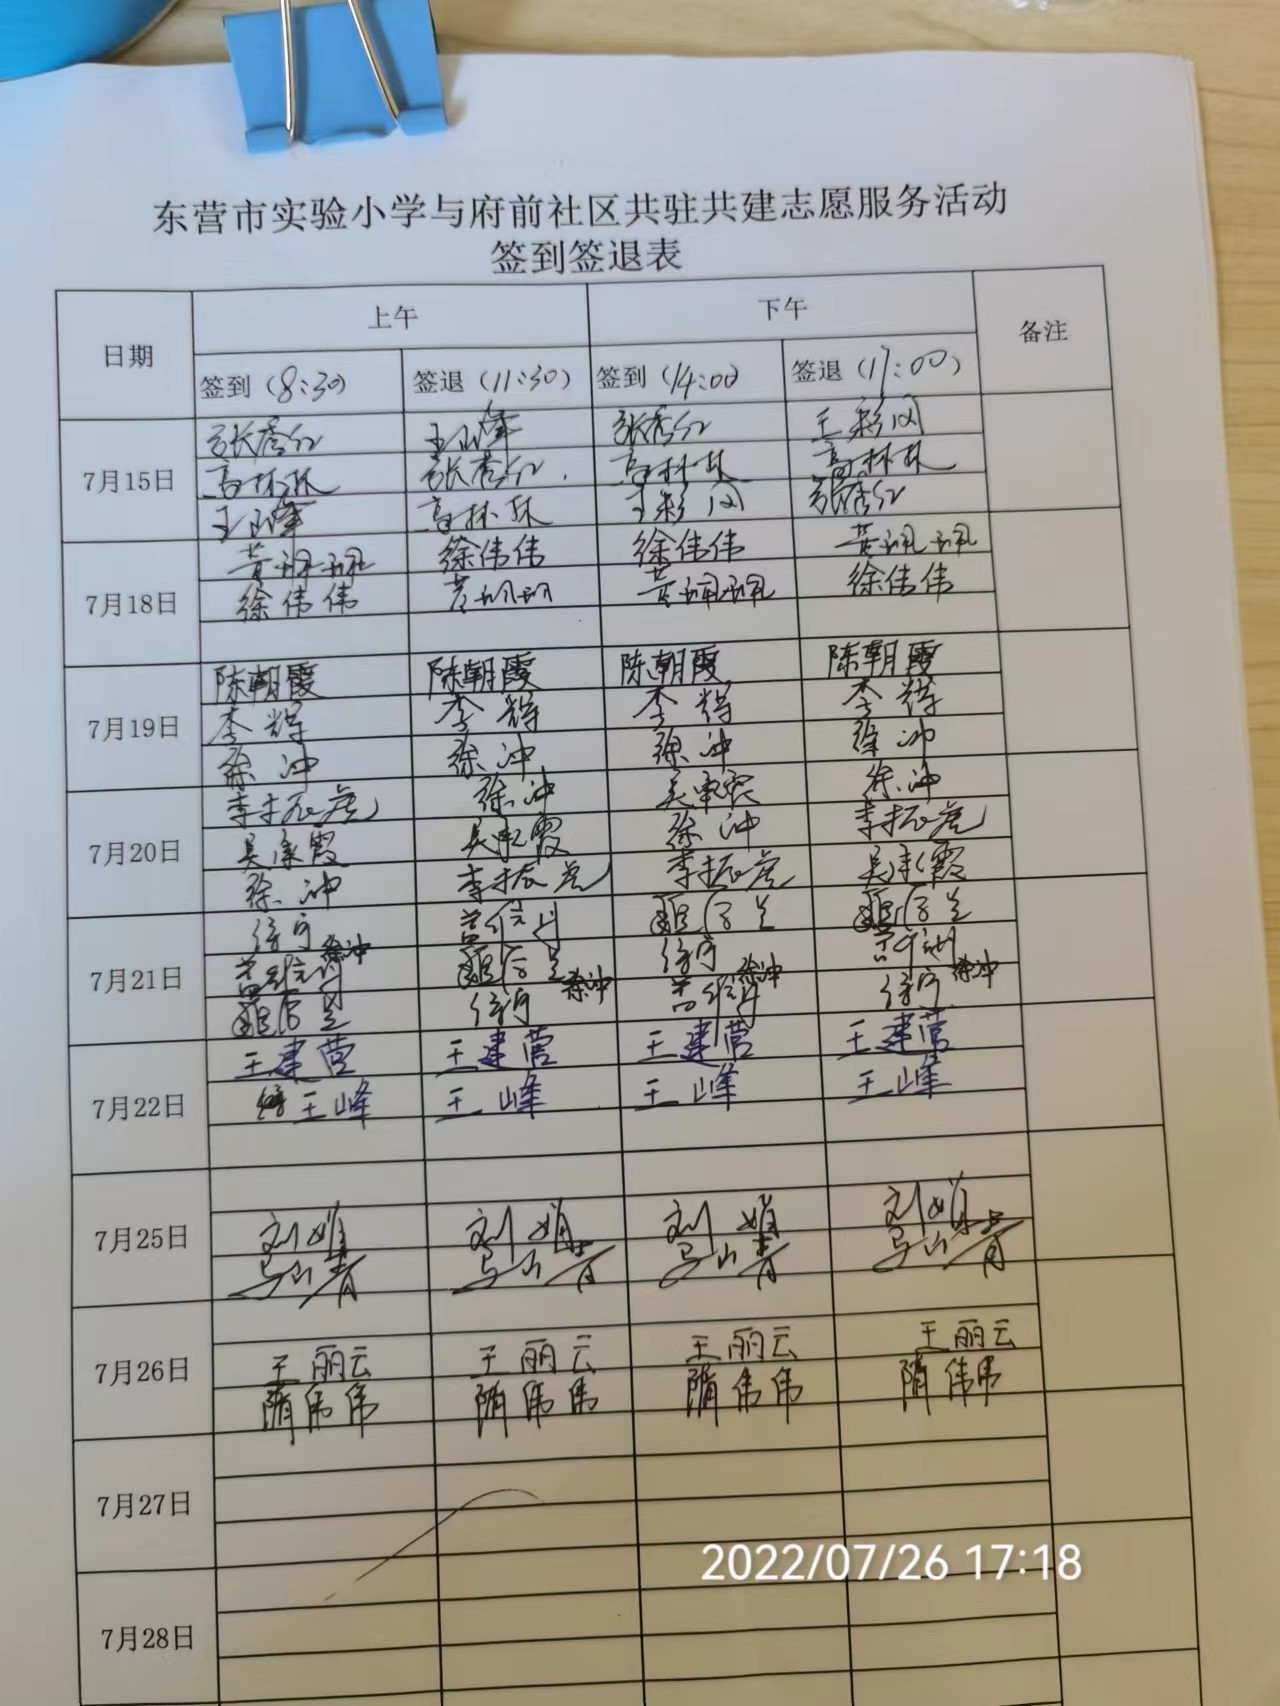 东营市实验小学与府前社区共驻共建志愿服务活动
签到签退表
日期 上午 下午 备注
签到（8:30） 签退（11:30） 签到（14:00） 签退（17:00）
7月15日
张秀红 王峰 张秀红 王彩凤
高林林 张秀红 高林林 高林林
王峰 高林林 王彩凤 张秀红
7月18日
徐伟伟 徐伟伟
徐伟伟 徐伟伟
7月19日
陈朝霞 陈朝霞 陈朝霞 陈朝霞
李辉 李辉 李辉 李辉
徐冲 徐冲 徐冲 徐冲
7月20日
李振虎 徐冲 吴承霞 徐冲
吴承霞 吴承霞 徐冲 李振虎
徐冲 李振虎 李振虎 吴承霞
7月21日
徐冲 徐冲 徐冲 徐冲
7月22日
王建营 王建营 王建营 王建营
王峰 王峰 王峰 王峰
7月25日
刘娟 刘娟 刘娟 刘娟
马山青 马山青 马山青 马山青
7月26日
王丽云 王丽云 王丽云 王丽云
隋伟伟 隋伟伟 隋伟伟 隋伟伟
7月27日
2022/07/26 17:18
7月28日